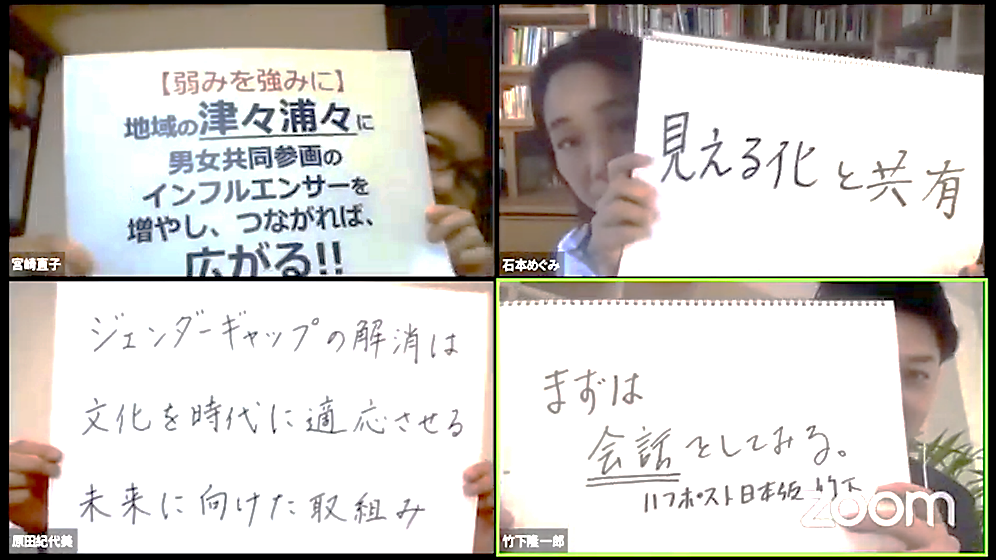 【弱みを強みに】
地域の津々浦々に
男女共同参画の
インフルエンサーを
増やし、つながれば、
広がる!!
宮崎直子
見える化と共有
石本めぐみ
ジェンダーギャップの解消は
文化を時代に適応させる
未来に向けた取組み
原田紀代美
まずは
会話をしてみる。
ハフポスト日本版 竹下
zoom
竹下隆一郎